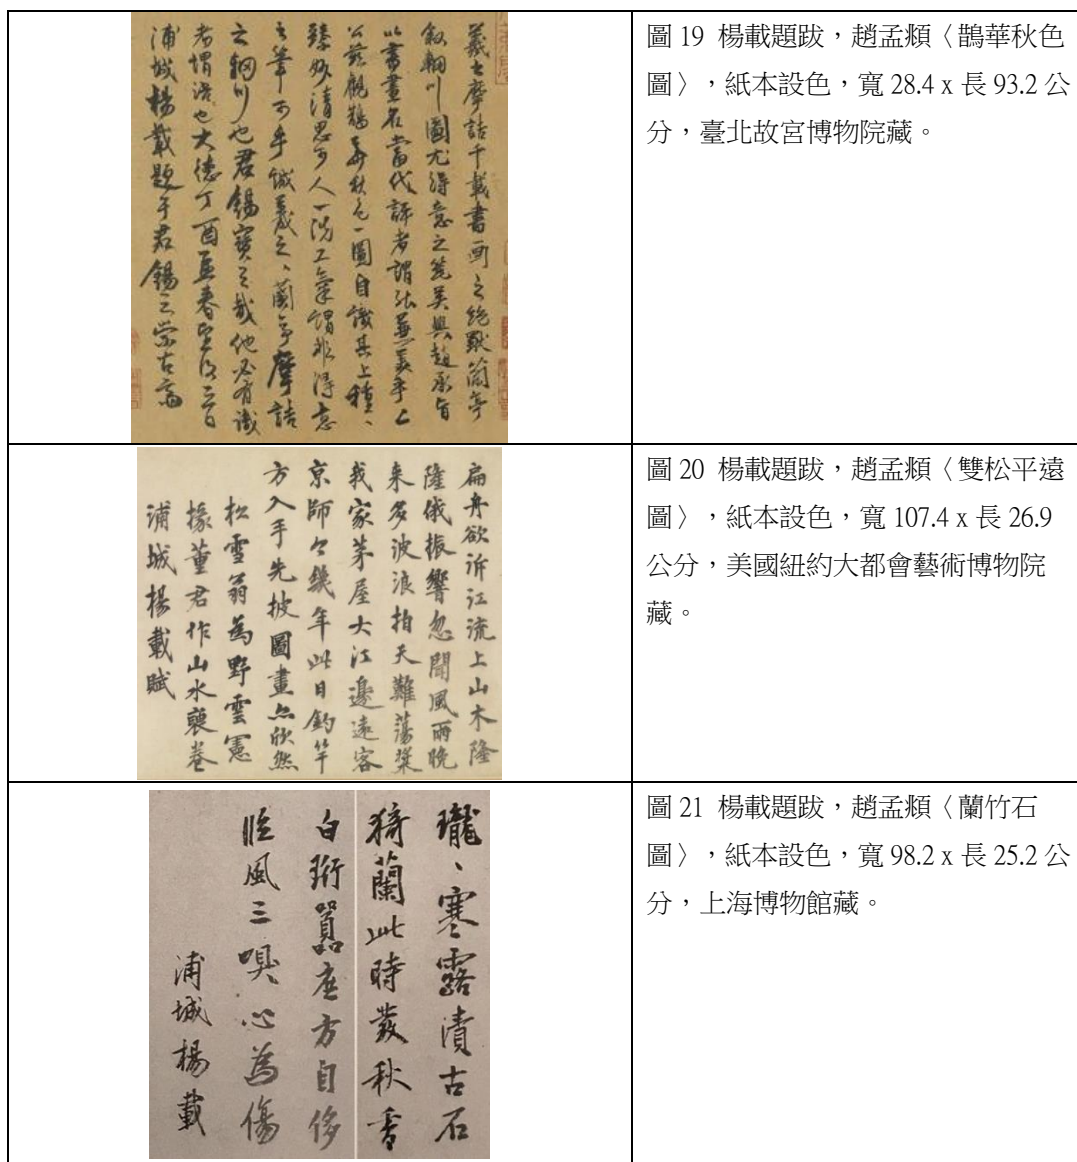 羲之摩詰千載書画之絕獨蘭亭
敘輞川圖尤得意之筆吳興趙承旨
以書畫名當代評者謂能兼美乎二
公茲觀鵲華秋色一圖自識其上種、
臻妙清思可人一洗工氣謂非得意
之筆可乎誠羲之、蘭亭摩詰
之輞川也君錫寶之哉他必有識
者謂語也大德丁酉孟春望後三日
浦城楊載題于君錫之崇古齋
圖 19 楊載題跋,趙孟頫〈鵲華秋色
圖〉,紙本設色,寬 28.4 x 長 93.2 公
分,臺北故宮博物院藏。
扁舟欲泝江流上山木隆
隆俄振響忽聞風雨晚
来多波浪拍天難蕩槳
我家茅屋大江邊遠客
京師今幾年此日釣竿
方入手先披圖畫亦欣然
松雪翁為野雲憲
掾董君作山水裝卷
浦城楊載賦
圖 20 楊載題跋,趙孟頫〈雙松平遠
圖〉,紙本設色,寬 107.4 x 長 26.9
公分,美國紐約大都會藝術博物院
藏。
瓏、寒露漬古石
猗蘭此時發秋香
白珩囂庭方自侈
臨風三嗅心為傷
浦城楊載
圖 21 楊載題跋,趙孟頫〈蘭竹石
圖〉,紙本設色,寬 98.2 x 長 25.2 公
分,上海博物館藏。